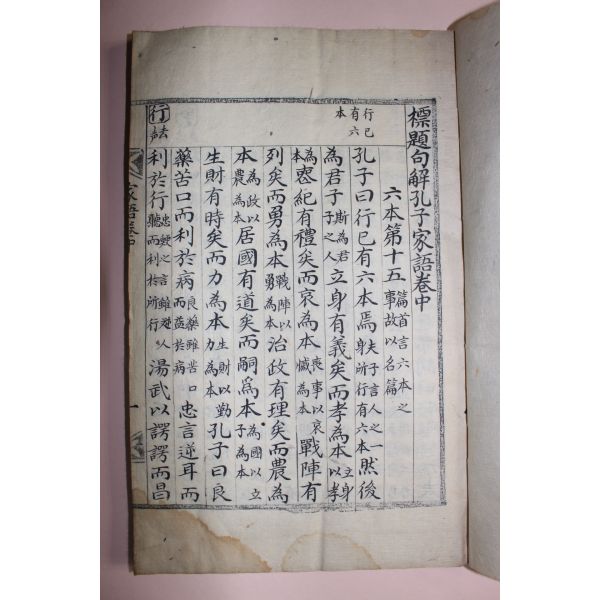 標題句解孔子家語卷中
六本第十五 篇首言六本之事故以名篇
行己有六本
孔子曰行己有六本焉 夫子言人之一身所行有六本 然後
為君子 斯為君子之人 立身有義矣而孝為本 立身以孝為本
喪紀有禮矣而哀為本 喪事以哀慽為本 戰陣有
列矣而勇為本 戰陣以勇為本 治政有理矣而農為
本 為政以農為本 居國有道矣而嗣爲本 為國以立子為本
生財有時矣而力為本 生財以勤力為本 孔子曰良
藥苦口而利於病 良藥雖苦口而益於病 忠言逆耳而
行法
利於行 忠鯁之言雖逆人聽而利於所行 湯武以諤諤而昌
家語卷中
一